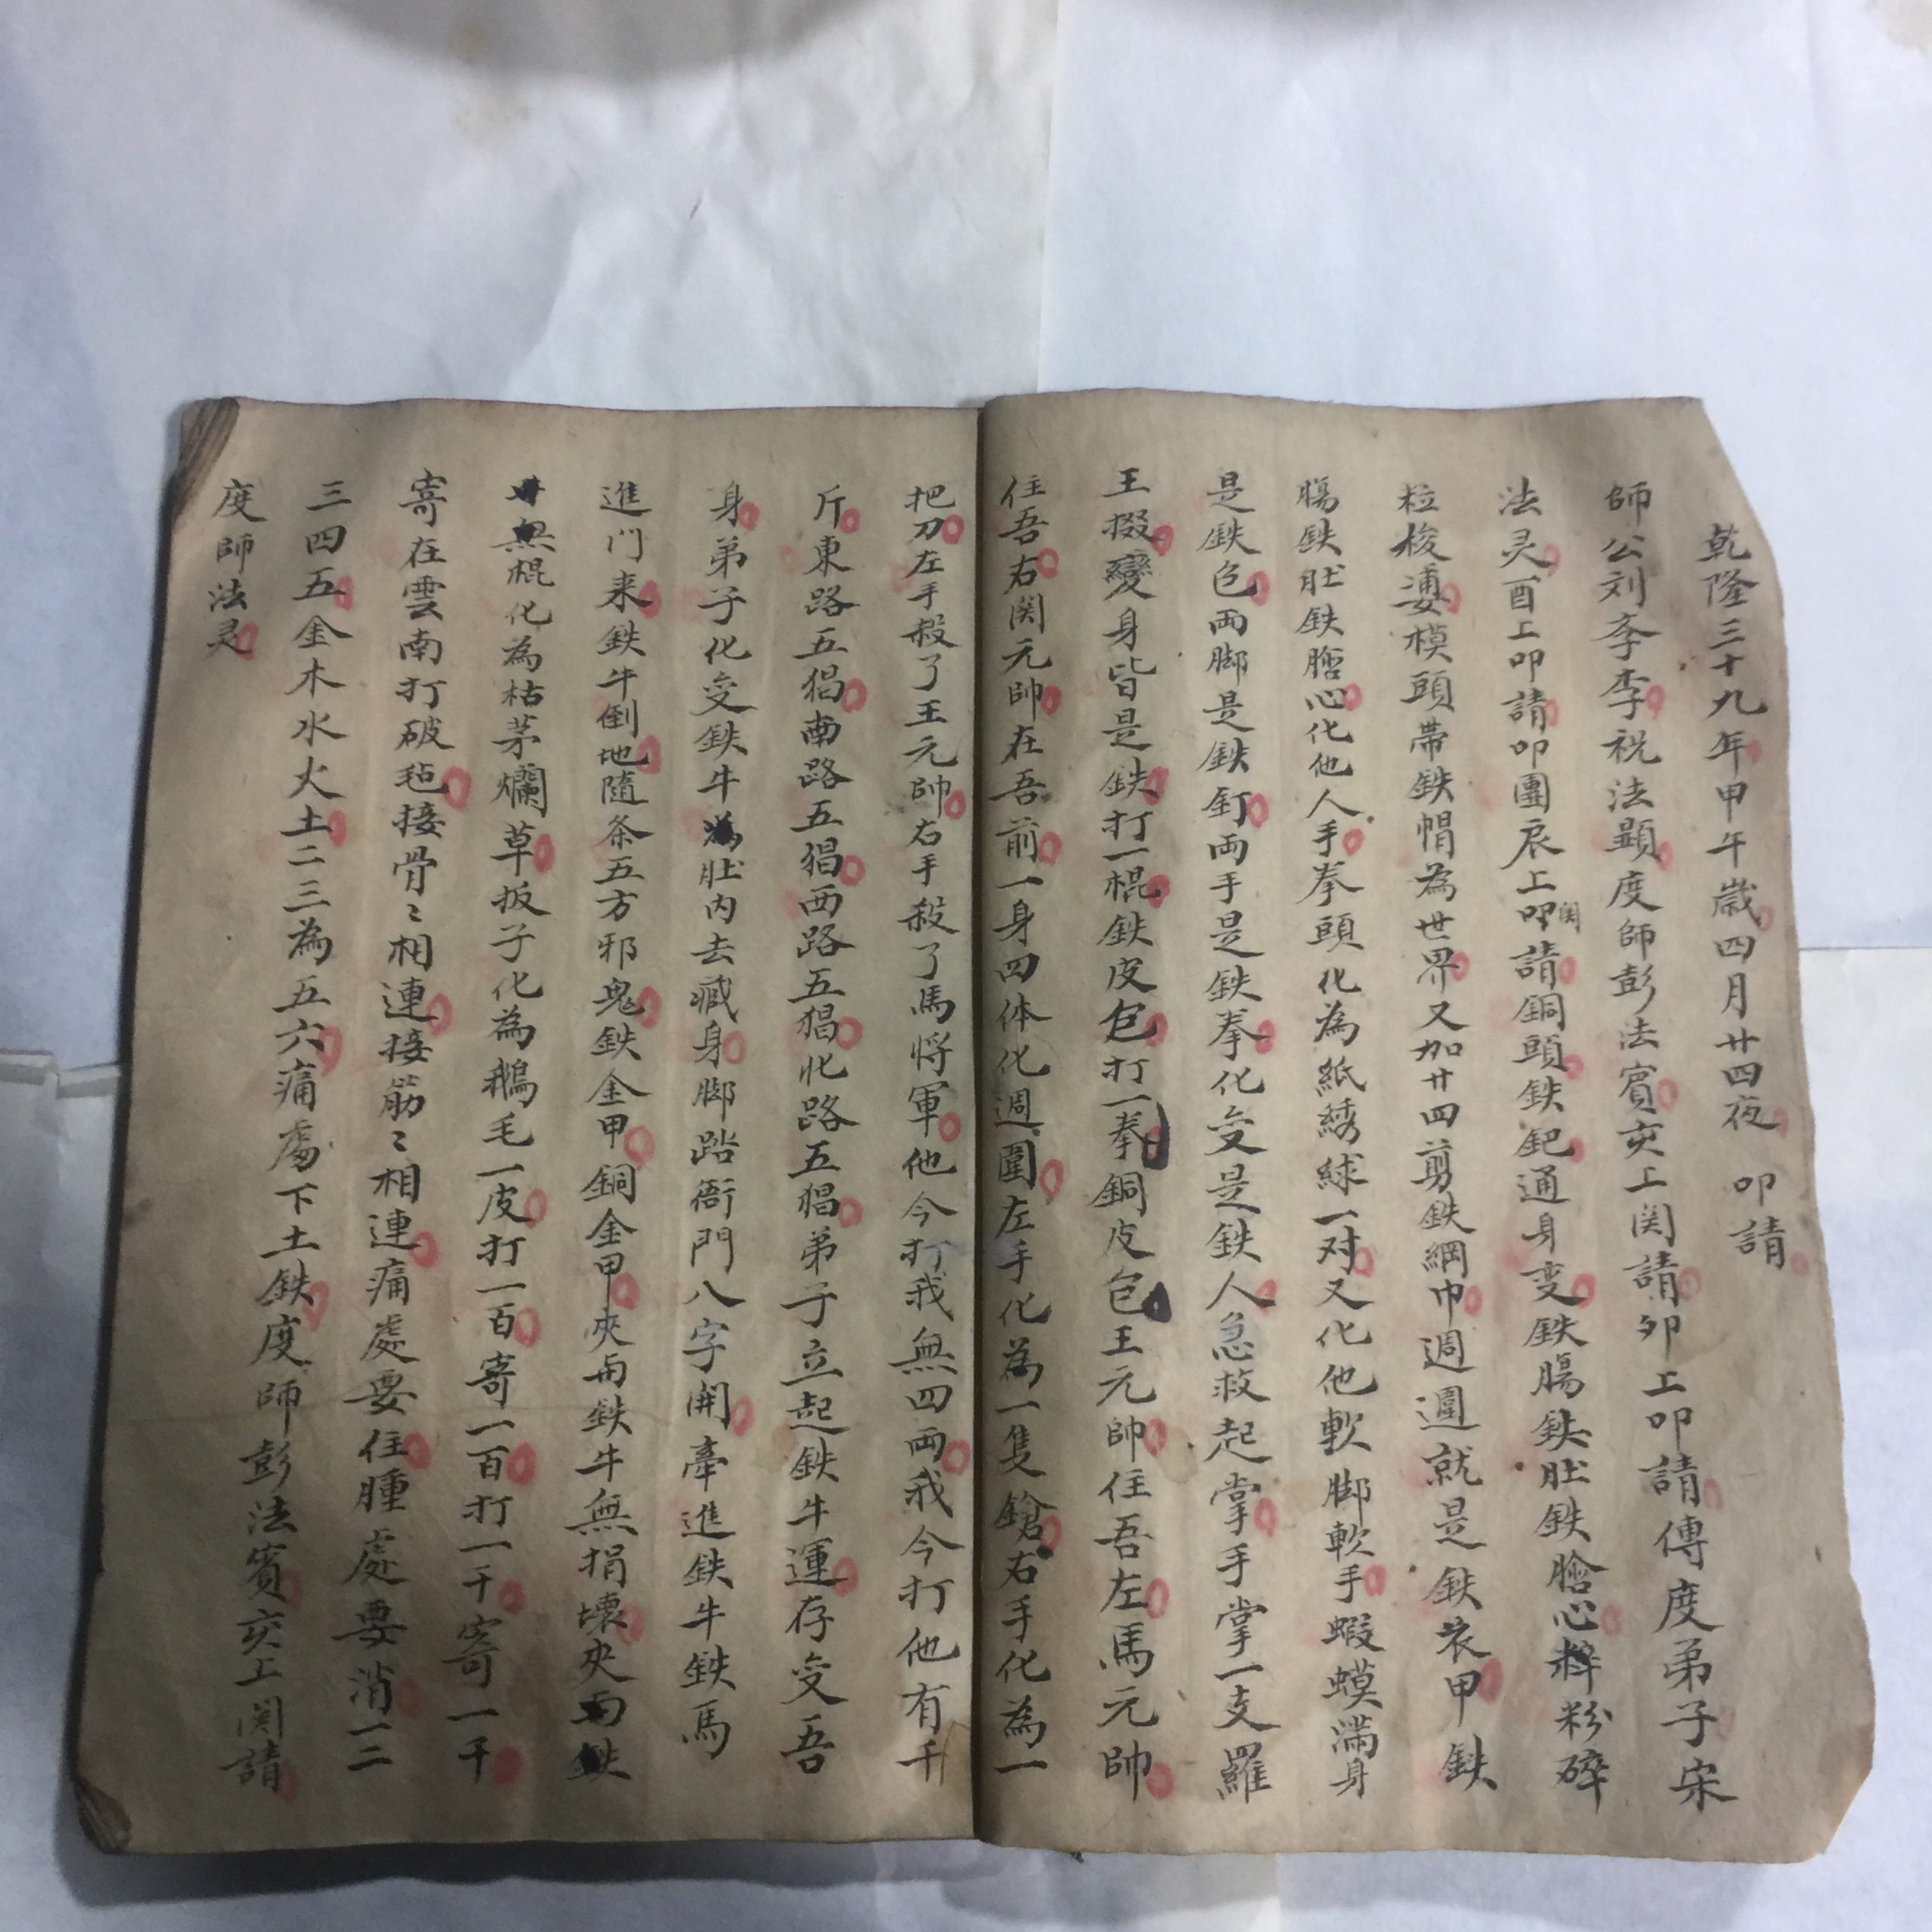 乾隆三十九年甲午歲四月廿四夜 叩請
師公刘李祝法顯度師彭法賓亥上関請卯上叩請傳度弟子宋
法灵酉上叩請叩團辰上叩関請銅頭鉄鈀通身变鉄腸鉄肚鉄膾心粉碎
粒梭模頭帶鉄帽為世界又加廿四剪鉄網巾週圍就是鉄衣甲鉄
腸鉄肚鉄膾心化他人手拳頭化為紙綉球一对又化他軟脚軟手蝦蟆滿身
是鉄包両脚是鉄釘両手是鉄拳化变是鉄人急救起掌手掌一支羅
王掇變身皆是鉄打一棍鉄皮包打一拳銅皮包王元帥住吾左馬元帥
住吾右関元帥在吾前一身四体化週圍左手化為一隻鎗右手化為一
把刀左手殺了王元帥右手殺了馬將軍他今打我無四両我今打他有千
斤東路五猖南路五猖西路五猖北路五猖弟子立起鉄牛運存变吾
身弟子化变鉄牛為肚内去藏身脚踏衙門八字開牽進鉄牛鉄馬
進门来鉄牛倒地隨条五方邪鬼鉄金甲銅金甲夾両鉄牛無捐壞夾両鉄
牛無棍化為枯茅爛草扳子化為鵝毛一皮打一百寄一百打一千寄一千
寄在雲南打破毡接骨〻相連接筋〻相連痛處要住腫處要消一二
三四五金木水火土二三為五六痛處下土鉄度師彭法賓亥上関請
度師法灵